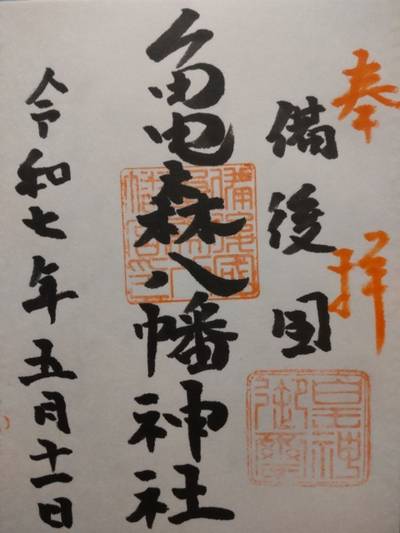 奉拝
備後国
亀森八幡神社
令和七年五月十一日